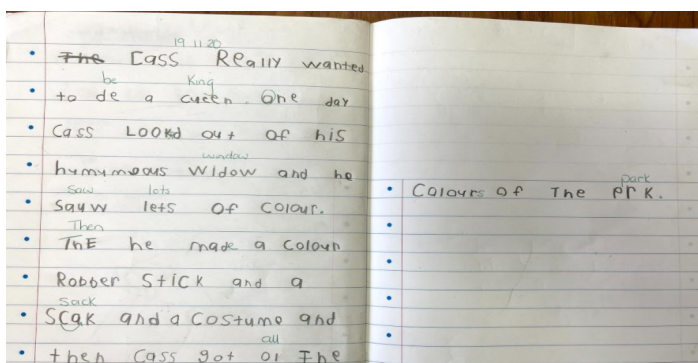 19.11.20
The Cass Really wanted
be King
to de a cueen. One day
Cass LOOKd out of his
window
humumeous Widow and he
saw lots
Sauw lets of Colour.
Then
ThE he made a Colour
Robber Stick and a
Sack
Scak and a Costume and
all
then Cass got ol The
park
Colours of The prk.